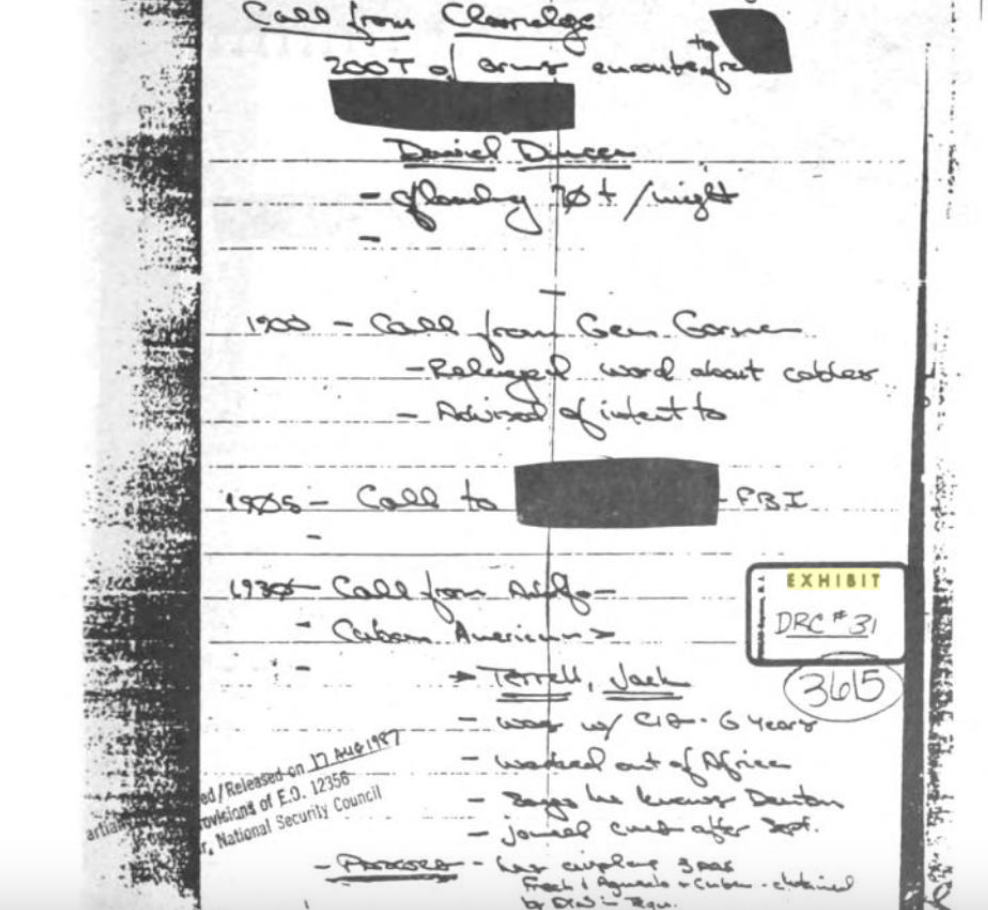 Call from Clarridge
200T of arms enroute to
Daniel Duncan
- 70t/night
-
-
1900 - Call from Gen Gorman
- Relayed word about cables
- Advised of intent to
1905 - Call to - FBI
-
1930 - Call from Adolfo -
- Cuban Americans >
-
→ Terrell, Jack
- was w/ CIA - 6 years
- worked out of Africa
- Says he knows Denton
- joined CMA after Sept.
- - has airplane
EXHIBIT
DRC # 31
3615
ed/Released on 17 Aug 1987
ovisions of E.O. 12356
r, National Security Council